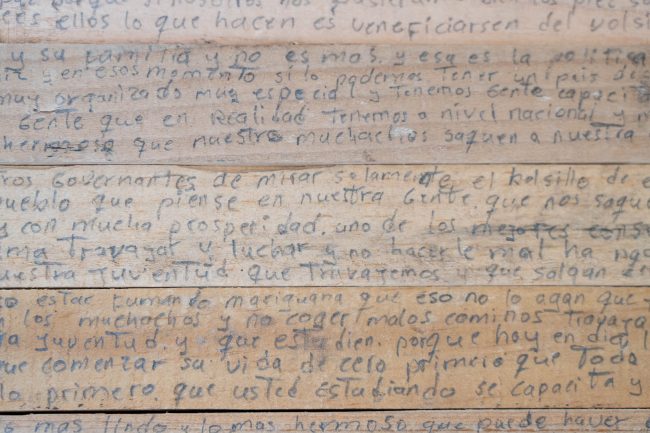 ellos lo que hacen es veneficiarsen del volsi
y su familia y no es mas. y esa es la politica
y en esos momento si lo podemos tener un pais de
muy organizado muy especial y tenemos Gente capacit
Gente que en Realidad tenemos a nivel nacional y n
hermosa que nuestro muchachos saquen a nuestra
ros Governantes de mirar solamente el bolsillo de e
pueblo que piense en nuestra Gente, que nos saqu
y con mucha prosperidad. uno de los mejores cons
ima Travajar y luchar y no hacer le mal ha na
uestra Juventud que travagemos y que salgan de
to estar fumando mariguana que eso no lo agan que
los muchachos y no coger malos cominos Travaga
ta juventud. y que esta bien. porque hoy en dia l
ue comenzar su vida de cero primero que Toda
lo primero. que usted estudiando se capacita y
mas lindo y lo mas hermoso que puede haver